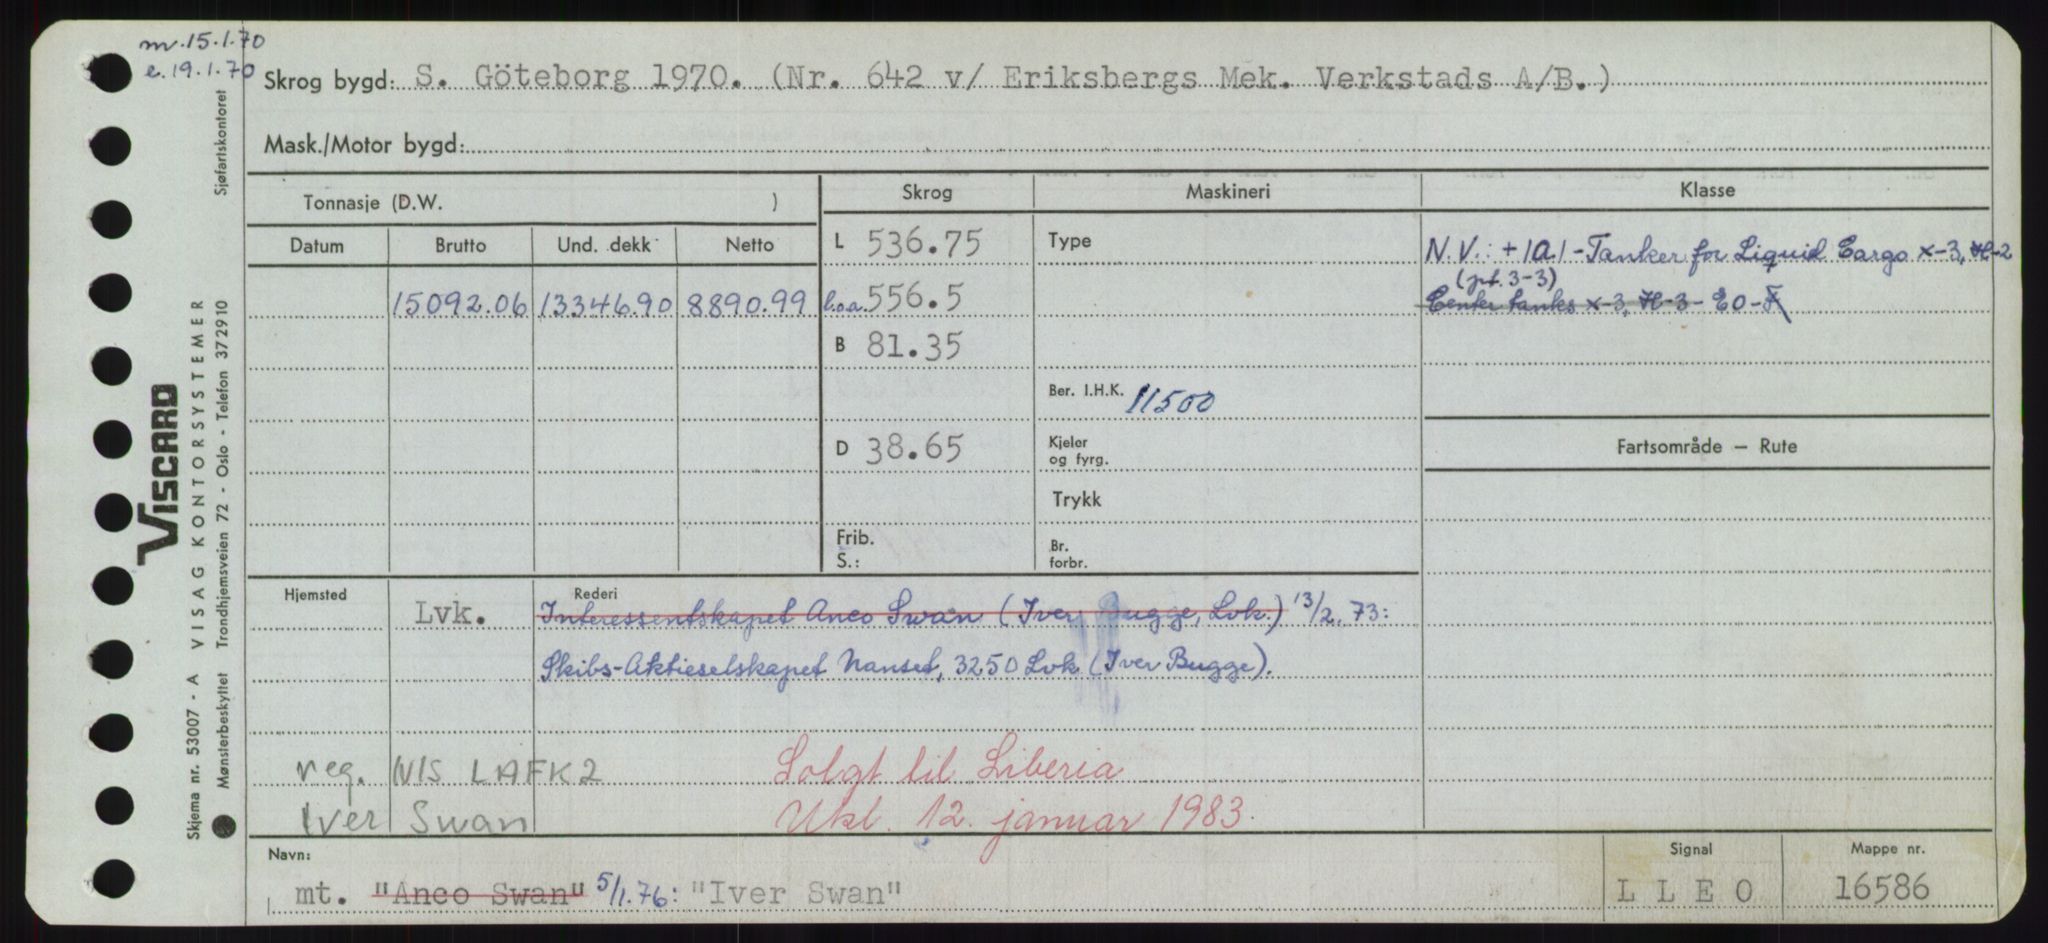 m.15.1.70
e.19.1.70
Skrog bygd: S. Göteborg 1970. (Nr. 642 v/ Eriksbergs Mek. Verkstads A/B.)
Mask./Motor bygd:
Tonnasje (D.W. )
Skrog
Maskineri
Klasse
Datum Brutto Und. dekk Netto
15092.06 13346.90 8890.99
L 536.75
l.o.a. 556.5
B 81.35
D 38.65
Frib.
S.:
Type
Ber. I.H.K. 11500
Kjeler
og fyrg.
Trykk
Br.
forbr.
N.V.: +1A1-Tanker for Liquid Cargo x-3, H-2
(pt. 3-3)
Center tanks x-3, H-3- EO-F
Fartsområde — Rute
Hjemsted
Rederi
Lvk. Interessentskapet Anco Swan (Iver Bugge, Lvk.) 13/2.73:
Skibs-Aktieselskapet Nanset, 3250 Lvk (Iver Bugge).
reg. NIS LAFK2
Iver Swan
Solgt til Liberia
Utkl. 12. januar 1983.
Navn:
mt. "Anco Swan" 5/1.76: "Iver Swan"
Signal
LLEO
Mappe nr.
16586
VISCARD
Skjema nr. 53007 - A VISAG KONTORSYSTEMER
Mønsterbeskyttet Trondhjemsveien 72 - Oslo - Telefon 372910
Sjøfartskontoret